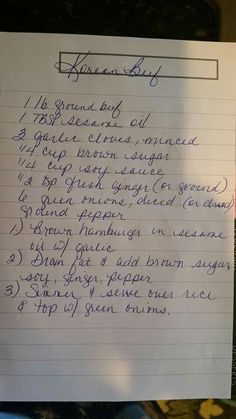 Korean Beef
1 lb ground beef
1 TBSP sesame oil
3 garlic cloves, minced
1/4 cup brown sugar
1/4 cup soy sauce
1/2 tsp fresh ginger (or ground)
6 green onions, diced (or dried)
ground pepper
1) Brown hamburger in sesame
oil w/ garlic
2) Drain fat & add brown sugar
soy, ginger, pepper
3) Simmer & serve over rice
& top w/ green onions.